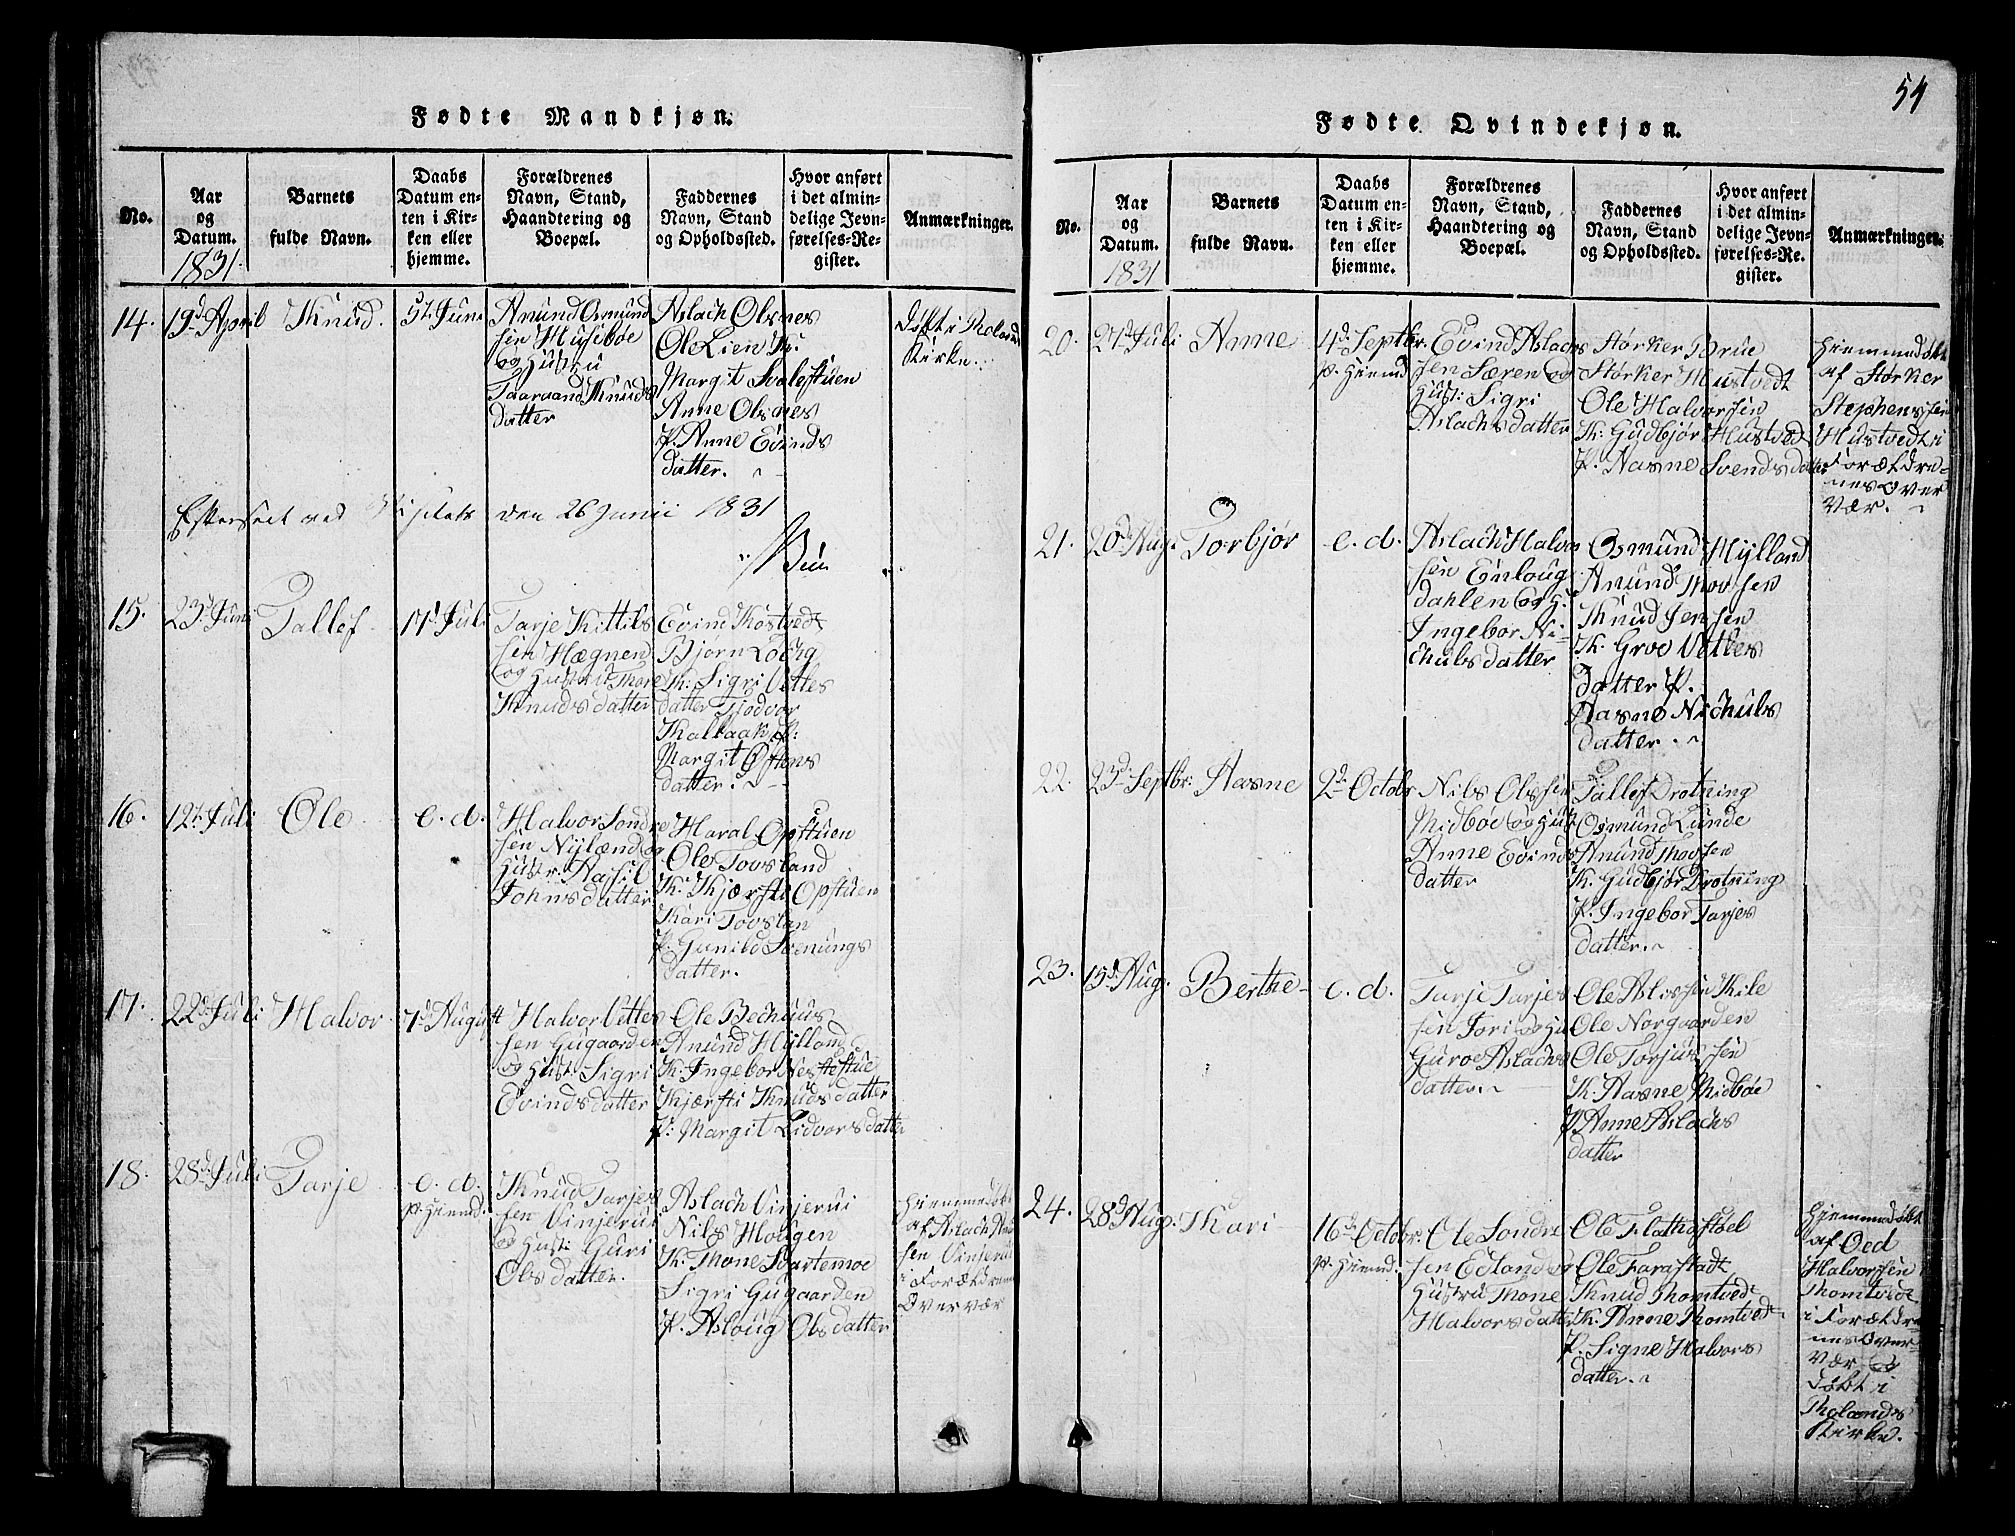 54
Fødte Mandkjøn.
No.
Aar
og
Datum.
1831.
Barnets
fulde Navn.
Daabs
Datum en-
ten i Kir-
ken eller
hjemme.
Forældrenes
Navn, Stand,
Haandtering og
Boepæl.
Faddernes
Navn, Stand
og Opholdssted.
Hvor anført
i det almin-
delige Jevn-
førelses-Re-
gister.
Anmærkninger.
14.
19d April
Knud.
5t Juni
Anund Osmund
sen Husebøe
og Hustru
Taaraand Knuds
datter
Aslach Olsnes
Ole Lien K:
Margit Svalestuen
Anne Olsnes
P. Anne Evinds
datter.
Døbt i
Kirke.
Efterseet ved den 26 Junii 1831
15.
23d Juni
Tallef
17d Juli
Tarje Kittils
sen Hægnen
og Hustru Thore
Knudsdatter
Evind Kostvedt
Bjørn Loeng
K: Sigri Vetles
datter Tjodvor
P:
Margit Østens
datter.
16.
12t Juli
Ole
e. d.
Halvor Sondre
sen Nylænd og
Hustr. Aasil
Johnsdatter
Haral Opstuen
Ole Tovsland
K: Kjærsti Opstuen
Kari Tovslan
P. Gunild Svenungs
datter.
17.
22d Juli
Halvor
7d August
Halvor Vetles
sen Gugaarden
og Hust: Sigri
Evindsdatter
Ole Bechuus
Anund Hylland
K. Ingebor Nestestue
Kjærsti Knudsdatter
P: Margit Lidvorsdatter
18.
28d Juli
Tarje
e. d.
p. Hiemd.
Knud Tarjes
sen Vinjerui
og Hust: Guri
Olsdatter.
Aslach Vinjerui
Nils Hougen
K. Thone Svartemoe
Sigri Gugaarden
P. Asloug Olsdatter
Hiemmedøbt
af Aslach
sen Vinjerui
i Forældrenes
Overvær
Fødte Qvindekjøn.
No.
Aar
og
Datum.
1831
Barnets
fulde Navn.
Daabs
Datum en-
ten i Kir-
ken eller
hjemme.
Forældrenes
Navn, Stand,
Haandtering og
Boepæl.
Faddernes
Navn, Stand
og Opholdssted.
Hvor anført
i det almin-
delige Jevn-
førelses-Re-
gister.
Anmærkninger.
20.
27d Juli
Anne
4d Septbr.
p. Hiemd
Evind Aslachs
sen Særen og
Hust: Sigri
Aslachsdatter
Størker Brue
Størker Hustvedt
Ole Halvorsen
K: Gudbjør Hustved
P. Aasne Svendsdatter
Hiemmedøbt
af Størker
Stephenssen
Hustvedt i
Forældre-
nes Over
vær.
21.
20d Aug:
Torbjør
e. d.
Aslach Halvor
sen Enloug
dahlen og H.
Ingebor Ni-
chulsdatter
Osmund Hylland
Anund Thovsen
Knud Jensen
K. Groe Vetles
datter P.
Aasne Nichuls
datter.
22.
23d Septbr:
Aasne
2d Octobr
Nils Olssen
Midbøe og Hust
Anne Evinds
datter
Tallef Drotning
Osmund Lunde
Anund Thovsen
K. Gudbjør Drotning
P. Ingebor Tarjes
datter.
23.
15d Aug.
Berthe
e. d.
Tarje Tarjes
sen Jori og Hu
Guroe Aslachs
datter.
Ole Aslissen Kile
Ole Norgaarden
Ole Torjussen
K. Aasne Midbøe
P. Anne Aslachs
datter
24.
28d Aug:
Kari
16d Octobr.
p. Hiemd.
Ole Sondre
sen Edland og
Hustru Thone
Halvorsdatter
Ole Flathøstøel
Ole Farastadt
Knud Romtvedt
K. Anne Romtvedt
P. Signe Halvors
datter.
Hjemmedøbt
af Oed
Halvorssen
Romtvedt
i Forældre-
nes Over-
vær og
døbt i
Kirke.